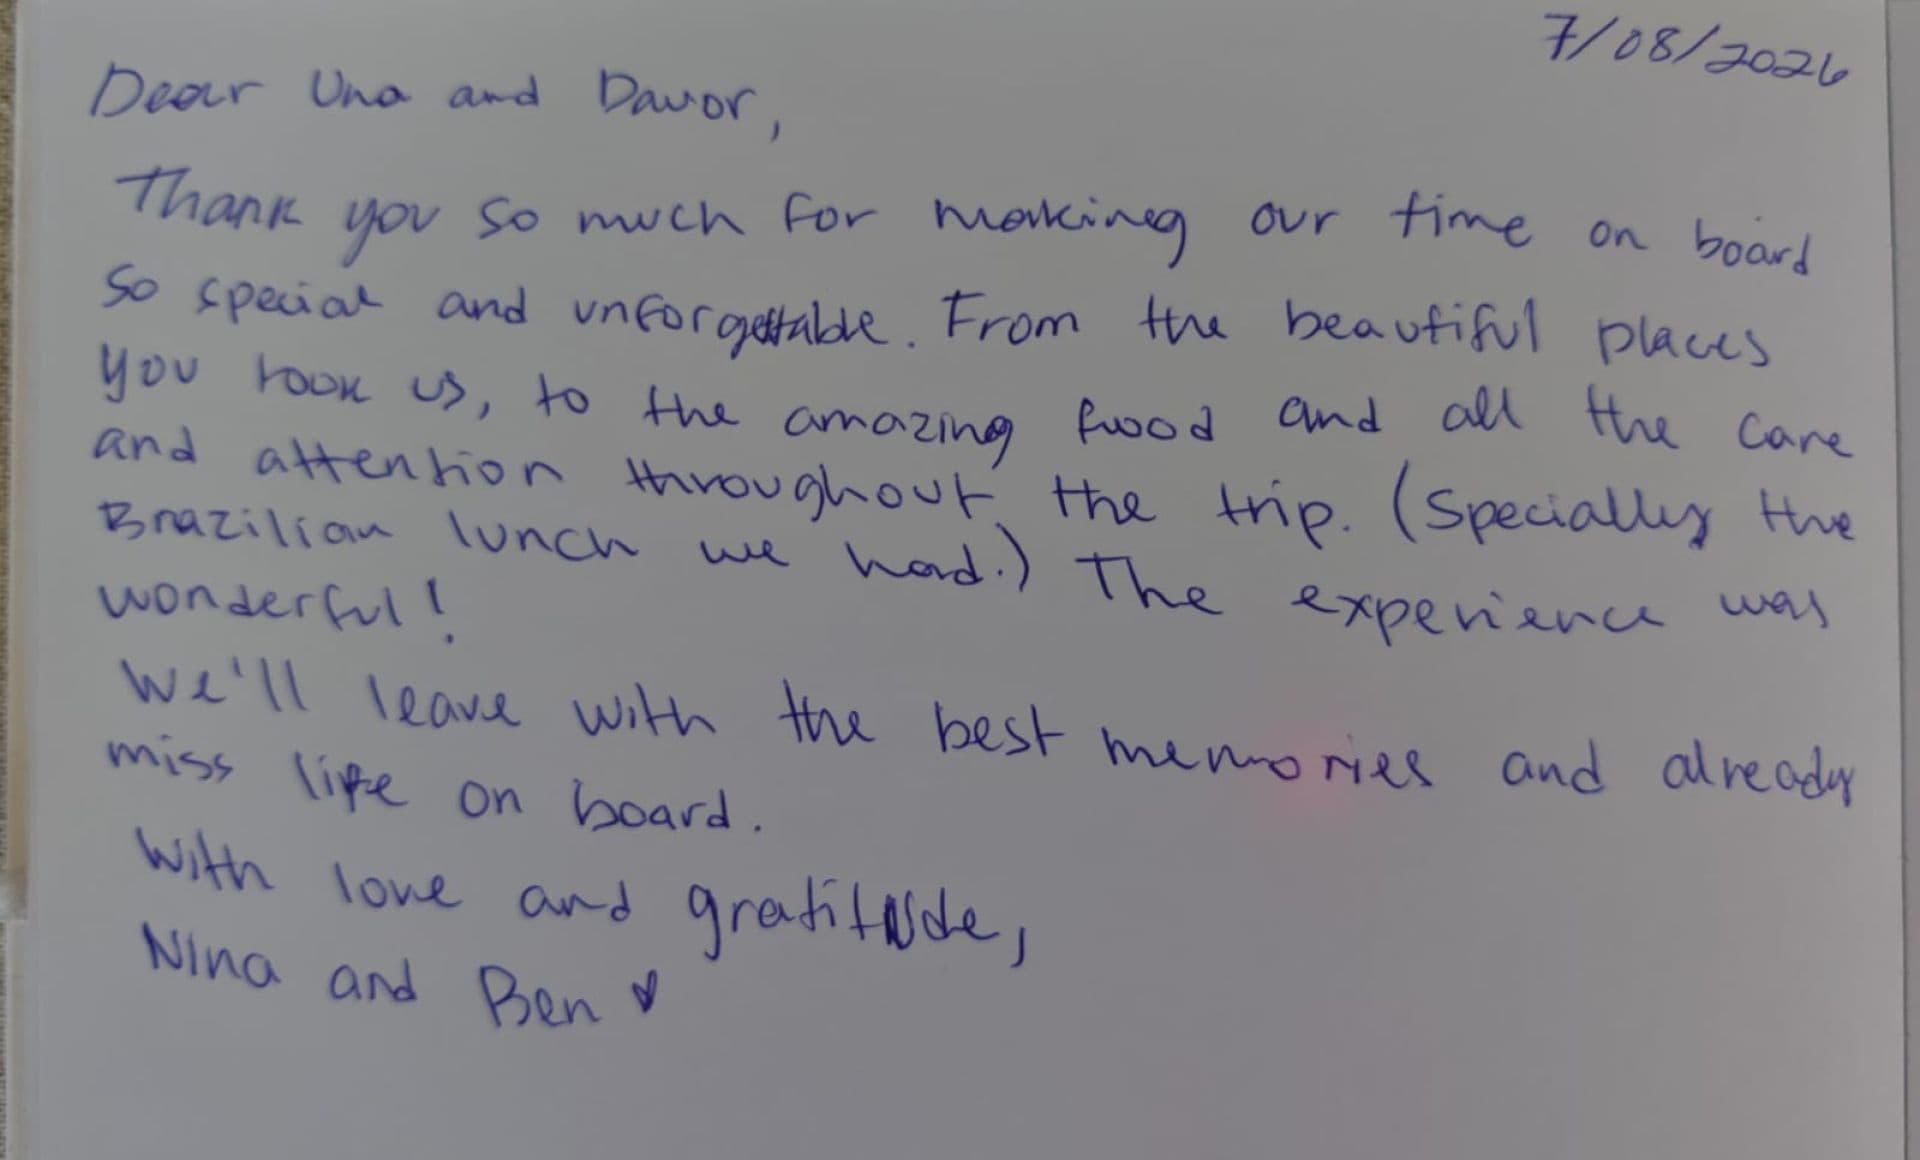 7/08/2026
Dear Una and Davor,
Thank you so much for making our time on board
so special and unforgettable. From the beautiful places
you took us, to the amazing food and all the care
and attention throughout the trip. (Specially the
Brazilian lunch we had.) The experience was
wonderful!
We'll leave with the best memories and already
miss life on board.
With love and gratitude,
Nina and Ben